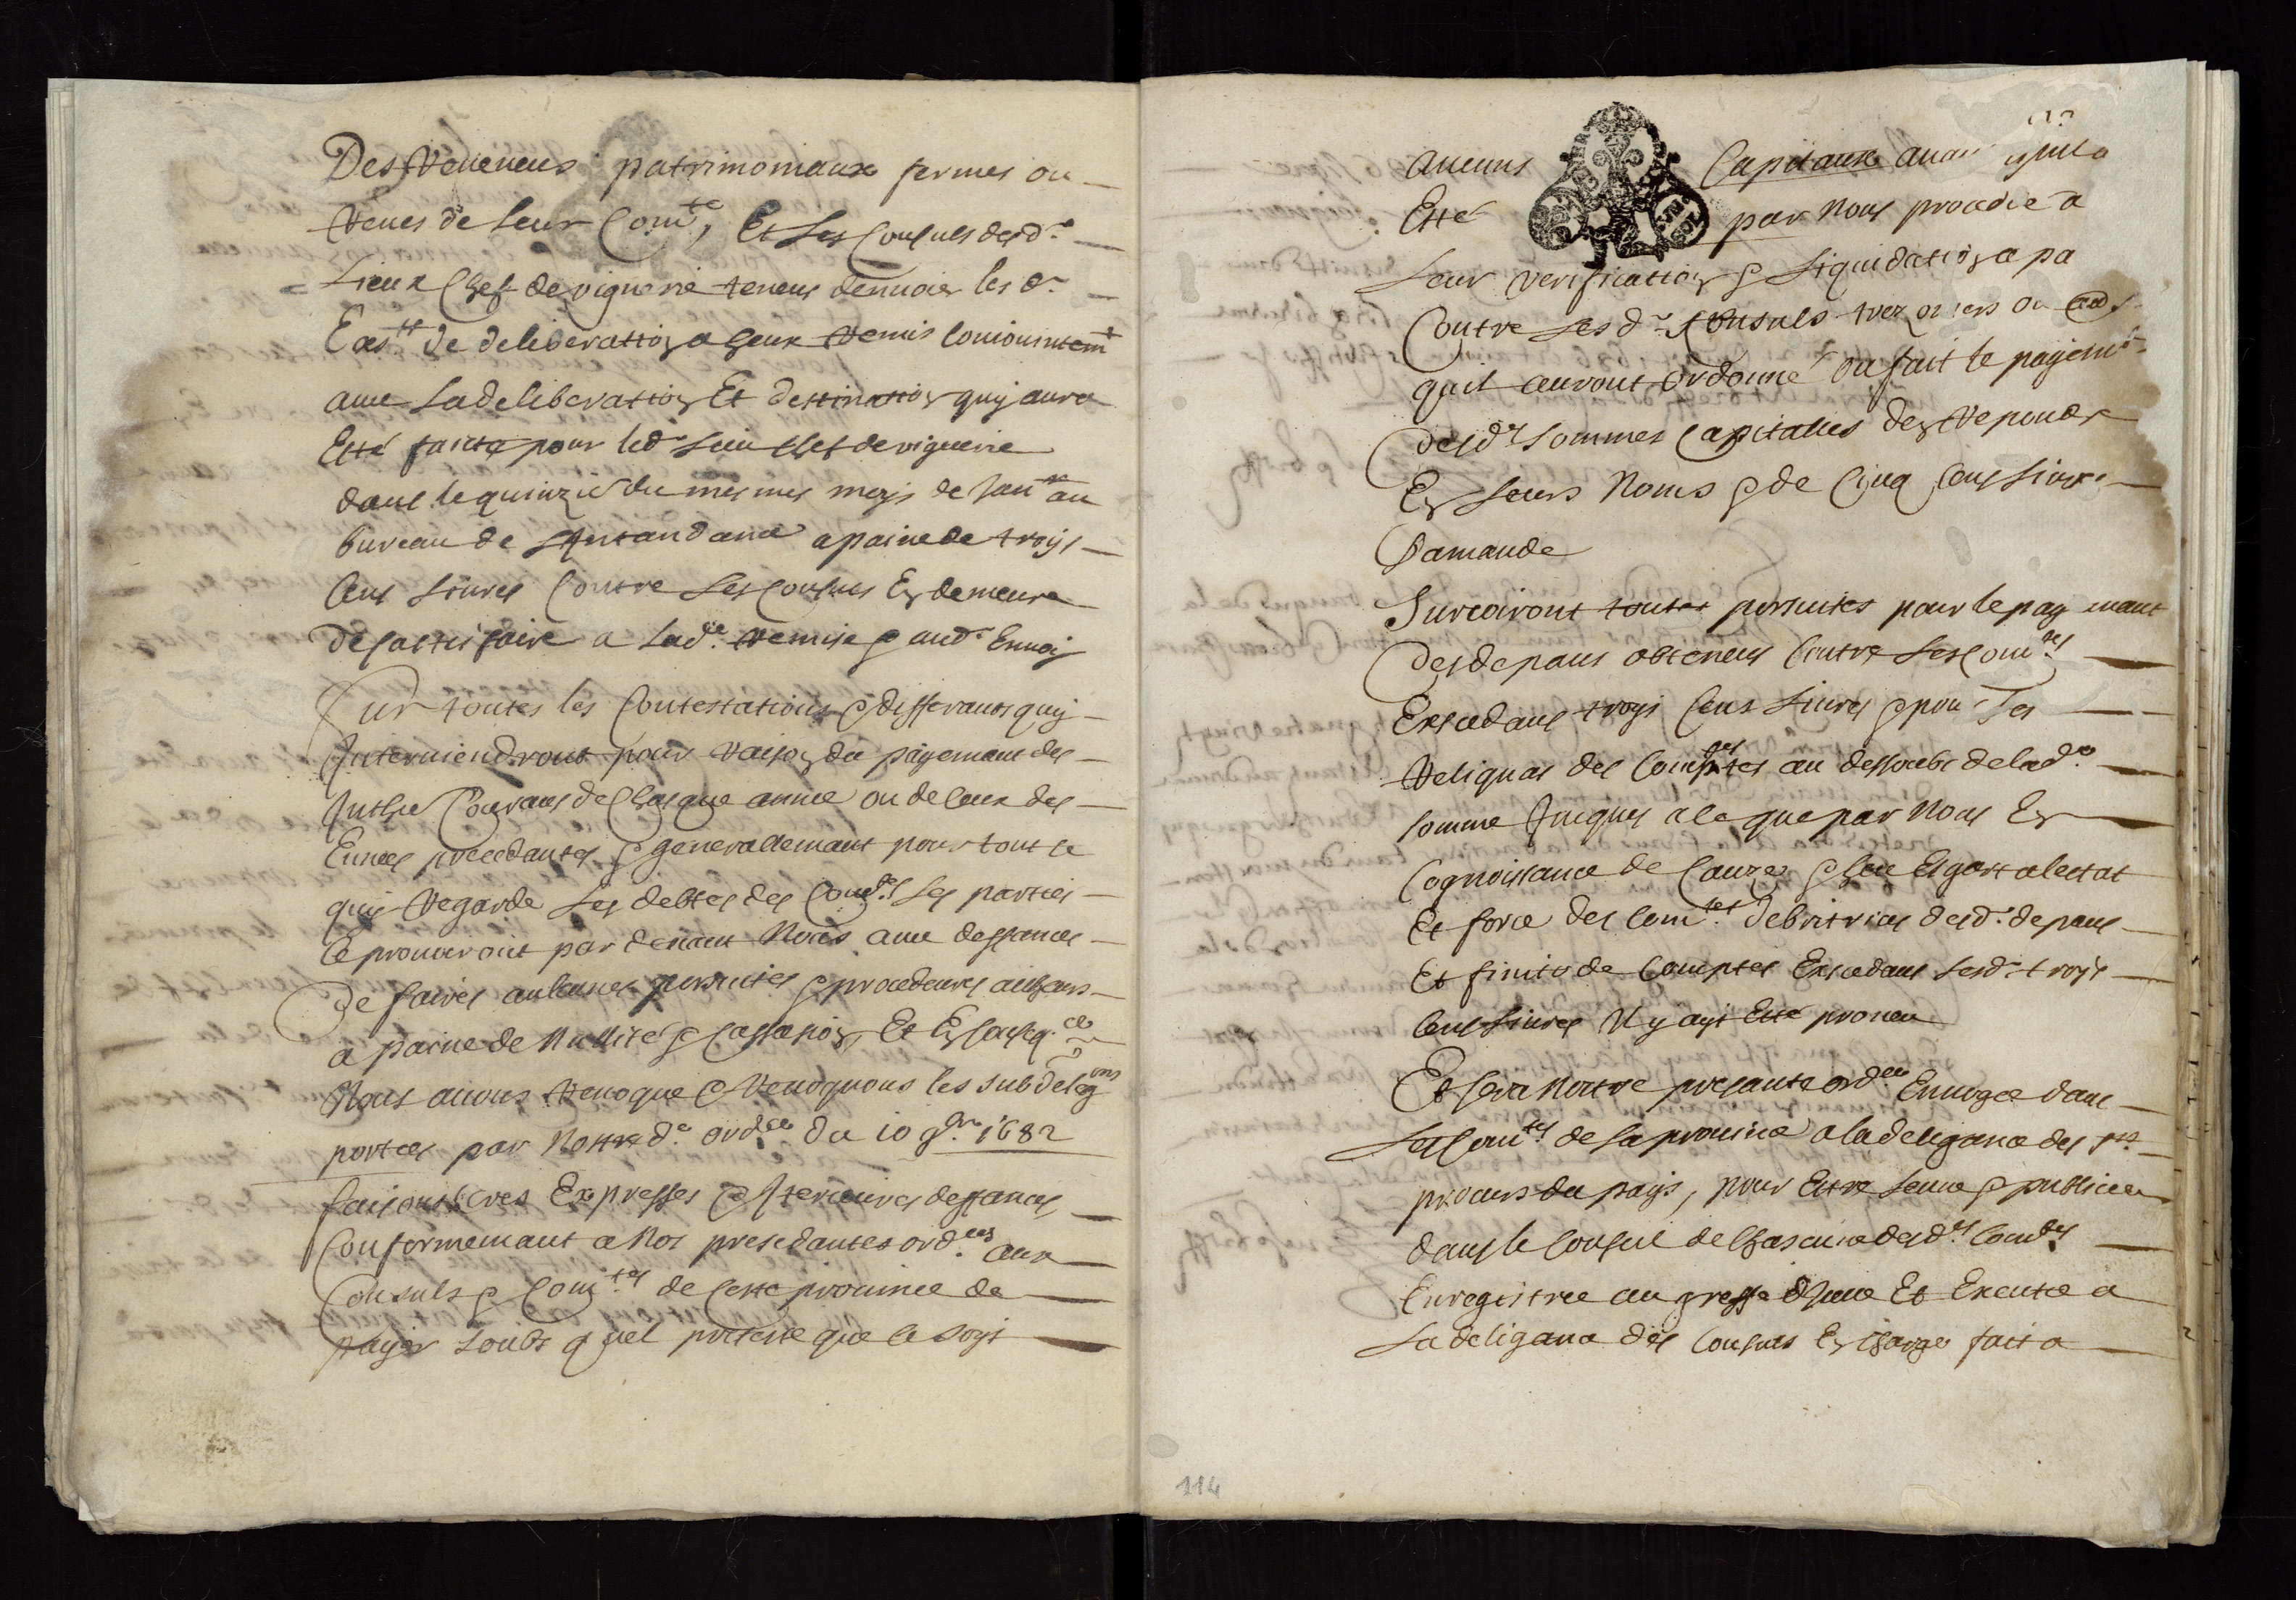 Des Revenus patrimoniaux fermes ou
Reves de leur Com.te, Et Les Consuls desd.s
Lieux Chef de viguerie tenus d'envoier les d.s
Ext.ts de deliberation a Ceux Remis Conioinctem.t
avec La deliberation Et destination quy aura
Esté faicte pour led.t Lieu Chef de viguerie
dans le quinzie du mesmes moys de Jan.er au
bureau de L'Intandance a paine de troys
Cens Livres Contre Les Consuls En demeure
de sattisfaire a Lad.te Remise & aud.t Envoy
Sur toutes les Contestations & differants quy
Interviendront pour Raison du payemant des
Inthe Courans de Chasque année ou de Ceux des
Ennées precedantes & generallemant pour tout ce
quy Regarde Les debtes des Com.tes Les parties
Ce prouvoiront par devant Nous avec deffances
De faires aulcunes poursuites & procedures allieurs
a paine de Nullité & Cassation, Et En Conseq.ce
Nous avons Revoque & Revoquons les subdeleg.ons
portées par Nostred.te ord.ce du 10 9.bre 1682
faisons tres Expresses & Iteratives deffances
Conformemant a Nos precedantes ord.ces aux
Consuls & Com.tes de Cette province de
payer soubs quel preteste que ce soyt
Aucuns Capitaux avant quil a
Esté par Nous procedé a
Leur verification & Liquidation a pa
Contre Lesd.s Consuls trezoriers ou
quil auront ordonné ou fait le payem.t
desd.s sommes Capitalles den Repondre
En Leurs Noms & de Cinq Cens Livres
Damande
Surcoiront toutes poursuites pour le payemant
Des depans obtenus Contre Les Com.tes
Excedans troys Cens Livres & pour Les
Reliquas des Comptes au dessoubs de lad.te
somme Jusques a ce que par Nous En
Cognoissance de Cauze & heu Esgart a lestat
Et force des Com.tes debitrices desd.s depans
Et finito de Comptes Excedans Lesd.s troys
Cens Livres Ny ayt Esté proveu
Et sera Nostre presante ord.ce Envoyée dans
Les Com.tes de La province a la deligance des s.rs
procurs du pays, pour Estre Leue & publiée
dans le Conseil de Chascune desd.s Com.tes
Enregistrée au greffe d'Icelle Et Executée a
La deligance des Consuls En Charge fait a
114